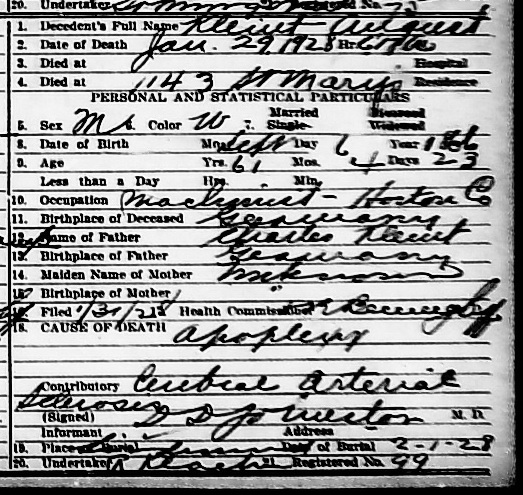 20. Undertaker
1. Decedent's Full Name Kleint August
2. Date of Death Jan. 29, 1928 Hr.
3. Died at Hospital
4. Died at 1143 St Marys Residence
PERSONAL AND STATISTICAL PARTICULARS
5. Sex M 6. Color W 7. Married Single Divorced Widowed
8. Date of Birth Mo. Sept Day 6 Year 1866
9. Age Yrs. 61 Mos. 4 Days 23
Less than a Day Hrs. Min.
10. Occupation Machinist - Horton Co
11. Birthplace of Deceased Germany
12. Name of Father Charles Kleint
13. Birthplace of Father Germany
14. Maiden Name of Mother Unknown
15. Birthplace of Mother "
Filed 1/31/28 Health Commissioner
18. CAUSE OF DEATH Apoplexy
Contributory Cerebral Arterial
Sclerosis
(Signed) D D Johnston M. D.
Informant Address
19. Place of Burial Date of Burial 2-1-28
20. Undertaker 21. Registered No. 99